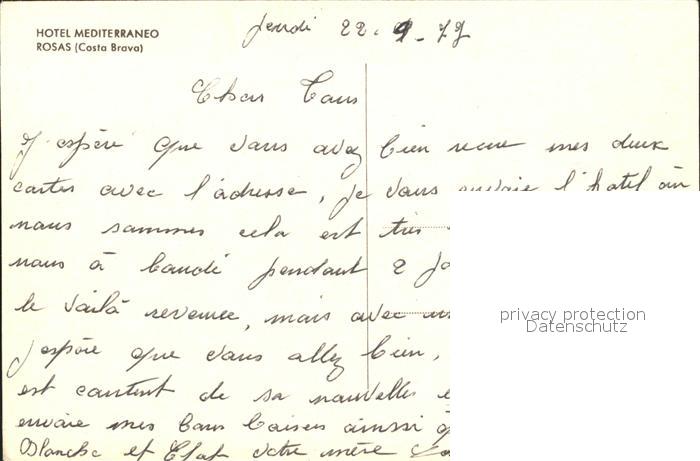 HOTEL MEDITERRANEO
ROSAS (Costa Brava)
Jeudi 22.9.72
Cher Tous
J'espère que vous avez bien recue mes deux
cartes avec l'adresse, je vous envoie l'hotel ou
nous sommes cela est très
nous à boudé pendant 2 jo
le voilà revenue, mais avec un
J'espère que vous allez bien,
est content de sa nouvelles
envoie mes bons baisers ainsi q
Blanche et votre mère
privacy protection
Datenschutz